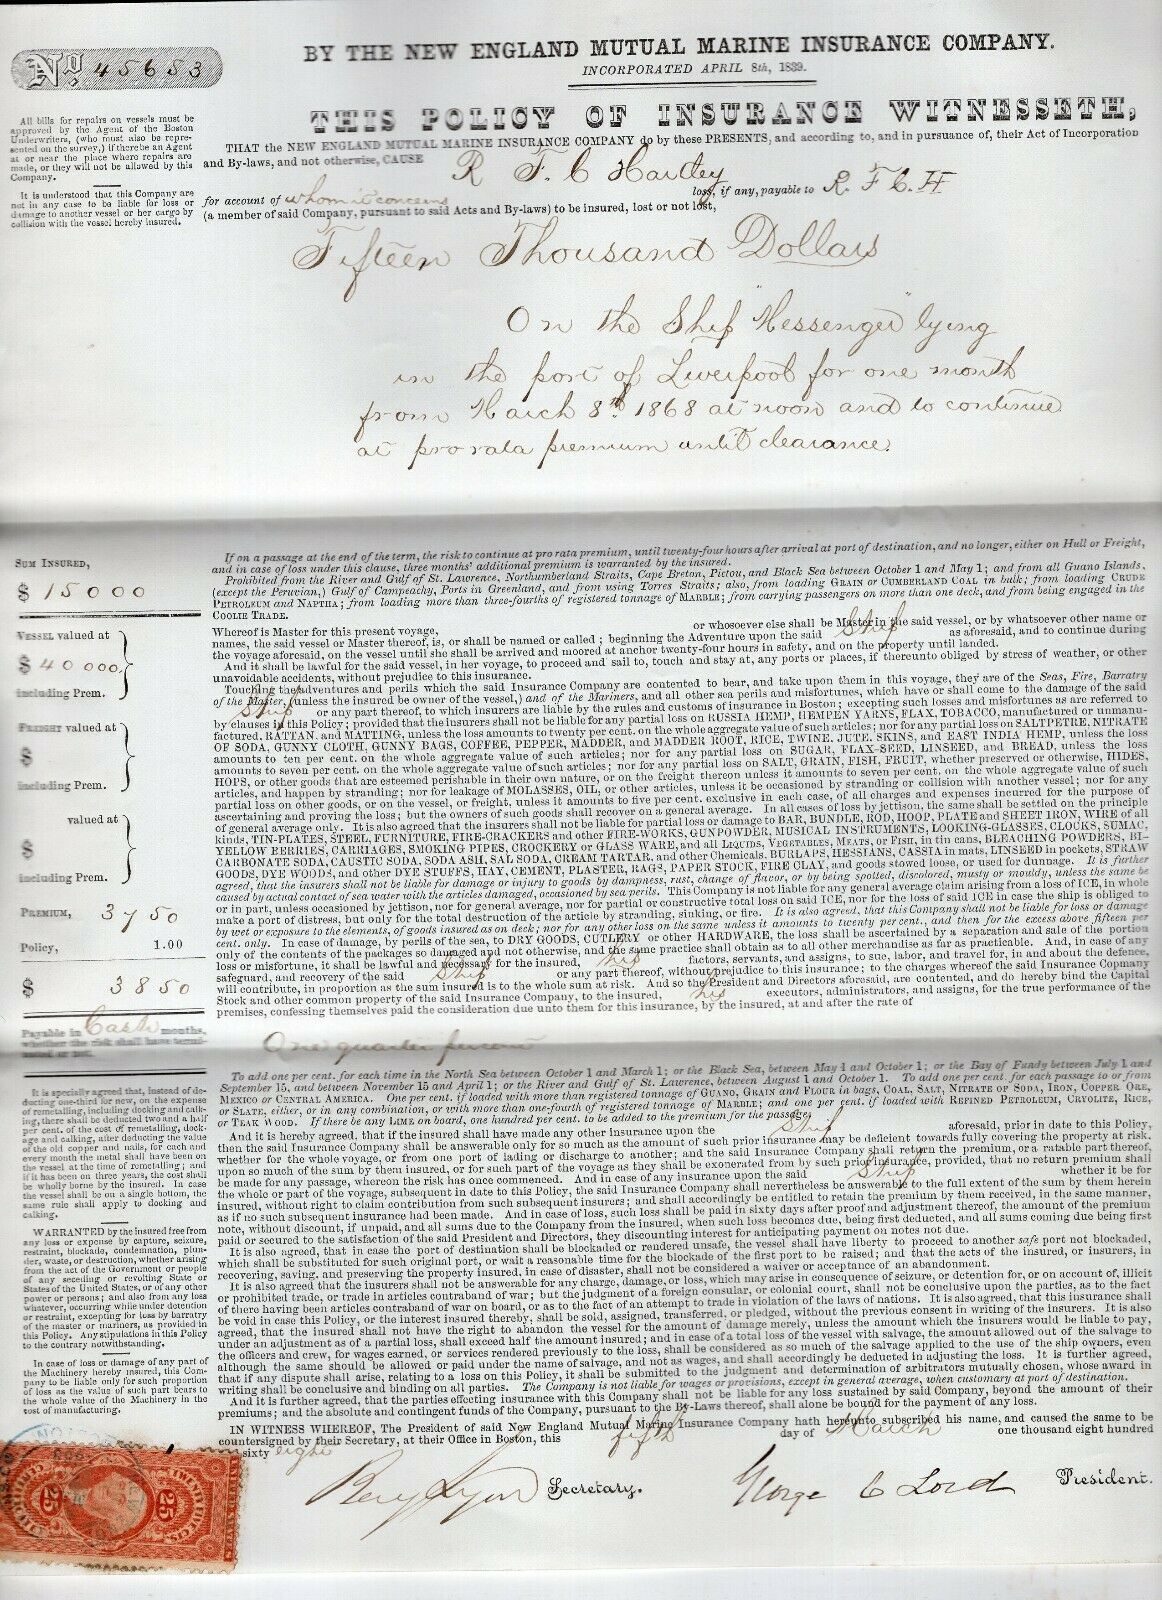 No 45653
BY THE NEW ENGLAND MUTUAL MARINE INSURANCE COMPANY.
INCORPORATED APRIL 8th, 1839.
THIS POLICY OF INSURANCE WITNESSETH,
THAT the NEW ENGLAND MUTUAL MARINE INSURANCE COMPANY do by these PRESENTS, and according to, and in pursuance of, their Act of Incorporation
and By-laws, and not otherwise, CAUSE R F. C Hartley
for account of whom it concerns loss, if any, payable to R. F C. H
(a member of said Company, pursuant to said Acts and By-laws) to be insured, lost or not lost,
Fifteen Thousand Dollars
On the Ship "Messenger" lying
in the port of Liverpool for one month
from March 8th 1868 at noon and to continue
at pro rata premium until clearance.
All bills for repairs on vessels must be
approved by the Agent of the Boston
Underwriters, (who must also be repre-
sented on the survey,) if there be an Agent
at or near the place where repairs are
made, or they will not be allowed by this
Company.
It is understood that this Company are
not in any case to be liable for loss or
damage to another vessel or her cargo by
collision with the vessel hereby insured.
SUM INSURED,
$ 15000
VESSEL valued at
$ 40000
including Prem.
FREIGHT valued at
$
including Prem.
valued at
$
including Prem.
PREMIUM, 37 50
Policy, 1.00
$ 38 50
Payable in Cash months,
whether the risk shall have termi-
nated or not.
It is specially agreed that, instead of de-
ducting one-third for new, on the expense
of remetalling, including docking and calk-
ing, there shall be deducted two and a half
per cent. of the cost of remetalling, dock-
age and calking, after deducting the value
of the old copper and nails, for each and
every month the metal shall have been on
the vessel at the time of remetalling; and
if it has been on three years, the cost shall
be wholly borne by the insured. In case
the vessel shall be on a single bottom, the
same rule shall apply to docking and
calking.
WARRANTED by the insured free from
any loss or expense by capture, seizure,
restraint, blockade, condemnation, plun-
der, waste, or destruction, whether arising
from the act of the Government or people
of any seceding or revolting State or
States of the United States, or of any other
power or persons; and also from any loss
whatever, occurring while under detention
or restraint, excepting for loss by barratry
of the master or mariners, as provided in
this Policy. Any stipulations in this Policy
to the contrary notwithstanding.
In case of loss or damage of any part of
the Machinery hereby insured, this Com-
pany to be liable only for such proportion
of loss as the value of such part bears to
the whole value of the Machinery in the
cost of manufacturing.
If on a passage at the end of the term, the risk to continue at pro rata premium, until twenty-four hours after arrival at port of destination, and no longer, either on Hull or Freight,
and in case of loss under this clause, three months' additional premium is warranted by the insured.
Prohibited from the River and Gulf of St. Lawrence, Northumberland Straits, Cape Breton, Pictou, and Black Sea between October 1 and May 1; and from all Guano Islands,
(except the Peruvian,) Gulf of Campeachy, Ports in Greenland, and from using Torres Straits; also, from loading GRAIN or CUMBERLAND COAL in bulk; from loading CRUDE
PETROLEUM and NAPTHA; from loading more than three-fourths of registered tonnage of MARBLE; from carrying passengers on more than one deck, and from being engaged in the
COOLIE TRADE.
Whereof is Master for this present voyage, or whosoever else shall be Master in the said vessel, or by whatsoever other name or
names, the said vessel or Master thereof, is, or shall be named or called; beginning the Adventure upon the said Ship as aforesaid, and to continue during
the voyage aforesaid, on the vessel until she shall be arrived and moored at anchor twenty-four hours in safety, and on the property until landed.
And it shall be lawful for the said vessel, in her voyage, to proceed and sail to, touch and stay at, any ports or places, if thereunto obliged by stress of weather, or other
unavoidable accidents, without prejudice to this insurance.
Touching the adventures and perils which the said Insurance Company are contented to bear, and take upon them in this voyage, they are of the Seas, Fire, Barratry
of the Master, (unless the insured be owner of the vessel,) and of the Mariners, and all other sea perils and misfortunes, which have or shall come to the damage of the said
Ship or any part thereof, to which insurers are liable by the rules and customs of insurance in Boston; excepting such losses and misfortunes as are referred to
by clauses in this Policy; provided that the insurers shall not be liable for any partial loss on RUSSIA HEMP, HEMPEN YARNS, FLAX, TOBACCO, manufactured or unmanu-
factured, RATTAN, and MATTING, unless the loss amounts to twenty per cent. on the whole aggregate value of such articles; nor for any partial loss on SALTPETRE, NITRATE
OF SODA, GUNNY CLOTH, GUNNY BAGS, COFFEE, PEPPER, MADDER, and MADDER ROOT, RICE, TWINE, JUTE, SKINS, and EAST INDIA HEMP, unless the loss
amounts to ten per cent. on the whole aggregate value of such articles; nor for any partial loss on SUGAR, FLAX-SEED, LINSEED, and BREAD, unless the loss
amounts to seven per cent. on the whole aggregate value of such articles; nor for any partial loss on SALT, GRAIN, FISH, FRUIT, whether preserved or otherwise, HIDES,
HOPS, or other goods that are esteemed perishable in their own nature, or on the freight thereon unless it amounts to seven per cent. on the whole aggregate value of such
articles, and happen by stranding; nor for leakage of MOLASSES, OIL, or other articles, unless it be occasioned by stranding or collision with another vessel; nor for any
partial loss on other goods, or on the vessel, or freight, unless it amounts to five per cent. exclusive in each case, of all charges and expenses incurred for the purpose of
ascertaining and proving the loss; but the owners of such goods shall recover on a general average. In all cases of loss by jettison, the same shall be settled on the principle
of general average only. It is also agreed that the insurers shall not be liable for partial loss or damage to BAR, BUNDLE, ROD, HOOP, PLATE and SHEET IRON, WIRE of all
kinds, TIN-PLATES, STEEL, FURNITURE, FIRE-CRACKERS and other FIRE-WORKS, GUNPOWDER, MUSICAL INSTRUMENTS, LOOKING-GLASSES, CLOCKS, SUMAC,
YELLOW BERRIES, CARRIAGES, SMOKING PIPES, CROCKERY or GLASS WARE, and all LIQUIDS, VEGETABLES, MEATS, or FISH, in tin cans, BLEACHING POWDERS, BI-
CARBONATE SODA, CAUSTIC SODA, SODA ASH, SAL SODA, CREAM TARTAR, and other Chemicals, BURLAPS, HESSIANS, CASSIA in mats, LINSEED in pockets, STRAW
GOODS, DYE WOODS, and other DYE STUFFS, HAY, CEMENT, PLASTER, RAGS, PAPER STOCK, FIRE CLAY, and goods stowed loose, or used for dunnage. It is further
agreed, that the insurers shall not be liable for damage or injury to goods by dampness, rust, change of flavor, or by being spotted, discolored, musty or mouldy, unless the same be
caused by actual contact of sea water with the articles damaged, occasioned by sea perils. This Company is not liable for any general average claim arising from a loss of ICE, in whole
or in part, unless occasioned by jettison, nor for general average, nor for partial or constructive total loss on said ICE, nor for the loss of said ICE in case the ship is obliged to
make a port of distress, but only for the total destruction of the article by stranding, sinking, or fire. It is also agreed, that this Company shall not be liable for loss or damage
by wet or exposure to the elements, of goods insured as on deck; nor for any other loss on the same unless it amounts to twenty per cent., and then for the excess above fifteen per
cent. only. In case of damage, by perils of the sea, to DRY GOODS, CUTLERY or other HARDWARE, the loss shall be ascertained by a separation and sale of the portion
only of the contents of the packages so damaged and not otherwise, and the same practice shall obtain as to all other merchandise as far as practicable. And, in case of any
loss or misfortune, it shall be lawful and necessary for the insured, his factors, servants, and assigns, to sue, labor, and travel for, in and about the defence,
safeguard, and recovery of the said Ship or any part thereof, without prejudice to this insurance; to the charges whereof the said Insurance Copmany
will contribute, in proportion as the sum insured is to the whole sum at risk. And so the President and Directors aforesaid, are contented, and do hereby bind the Capital
Stock and other common property of the said Insurance Company, to the insured, his executors, administrators, and assigns, for the true performance of the
premises, confessing themselves paid the consideration due unto them for this insurance, by the insured, at and after the rate of
One quarter percent
To add one per cent. for each time in the North Sea between October 1 and March 1; or the Black Sea, between May 1 and October 1; or the Bay of Fundy between July 1 and
September 15, and between November 15 and April 1; or the River and Gulf of St. Lawrence, between August 1 and October 1. To add one per cent. for each passage to or from
MEXICO or CENTRAL AMERICA. One per cent. if loaded with more than registered tonnage of GUANO, GRAIN and FLOUR in bags, COAL, SALT, NITRATE OF SODA, IRON, COPPER ORE,
or SLATE, either, or in any combination, or with more than one-fourth of registered tonnage of MARBLE; and one per cent. if loaded with REFINED PETROLEUM, CRYOLITE, RICE,
or TEAK WOOD. If there be any LIME on board, one hundred per cent. to be added to the premium for the passage.
And it is hereby agreed, that if the insured shall have made any other insurance upon the Ship aforesaid, prior in date to this Policy,
then the said Insurance Company shall be answerable only for so much as the amount of such prior insurance may be deficient towards fully covering the property at risk,
whether for the whole voyage, or from one port of lading or discharge to another; and the said Insurance Company shall return the premium, or a ratable part thereof,
upon so much of the sum by them insured, or for such part of the voyage as they shall be exonerated from by such prior insurance, provided, that no return premium shall
be made for any passage, whereon the risk has once commenced. And in case of any insurance upon the said Ship whether it be for
the whole or part of the voyage, subsequent in date to this Policy, the said Insurance Company shall nevertheless be answerable to the full extent of the sum by them herein
insured, without right to claim contribution from such subsequent insurers; and shall accordingly be entitled to retain the premium by them received, in the same manner,
as if no such subsequent insurance had been made. And in case of loss, such loss shall be paid in sixty days after proof and adjustment thereof, the amount of the premium
note, without discount, if unpaid, and all sums due to the Company from the insured, when such loss becomes due, being first deducted, and all sums coming due being first
paid or secured to the satisfaction of the said President and Directors, they discounting interest for anticipating payment on notes not due.
It is also agreed, that in case the port of destination shall be blockaded or rendered unsafe, the vessel shall have liberty to proceed to another safe port not blockaded,
which shall be substituted for such original port, or wait a reasonable time for the blockade of the first port to be raised; and that the acts of the insured, or insurers, in
recovering, saving, and preserving the property insured, in case of disaster, shall not be considered a waiver or acceptance of an abandonment.
It is also agreed that the insurers shall not be answerable for any charge, damage, or loss, which may arise in consequence of seizure, or detention for, or on account of, illicit
or prohibited trade, or trade in articles contraband of war; but the judgment of a foreign consular, or colonial court, shall not be conclusive upon the parties, as to the fact
of there having been articles contraband of war on board, or as to the fact of an attempt to trade in violation of the laws of nations. It is also agreed, that this insurance shall
be void in case this Policy, or the interest insured thereby, shall be sold, assigned, transferred, or pledged, without the previous consent in writing of the insurers. It is also
agreed, that the insured shall not have the right to abandon the vessel for the amount of damage merely, unless the amount which the insurers would be liable to pay,
under an adjustment as of a partial loss, shall exceed half the amount insured; and in case of a total loss of the vessel with salvage, the amount allowed out of the salvage to
the officers and crew, for wages earned, or services rendered previously to the loss, shall be considered as so much of the salvage applied to the use of the ship owners, even
although the same should be allowed or paid under the name of salvage, and not as wages, and shall accordingly be deducted in adjusting the loss. It is further agreed,
that if any dispute shall arise, relating to a loss on this Policy, it shall be submitted to the judgment and determination of arbitrators mutually chosen, whose award in
writing shall be conclusive and binding on all parties. The Company is not liable for wages or provisions, except in general average, when customary at port of destination.
And it is further agreed, that the parties effecting insurance with this Company shall not be liable for any loss sustained by said Company, beyond the amount of their
premiums; and the absolute and contingent funds of the Company, pursuant to the By-Laws thereof, shall alone be bound for the payment of any loss.
IN WITNESS WHEREOF, The President of said New England Mutual Marine Insurance Company hath hereunto subscribed his name, and caused the same to be
countersigned by their Secretary, at their Office in Boston, this fifth day of March one thousand eight hundred
sixty eight
Secretary.
George C Lord President.
25 25